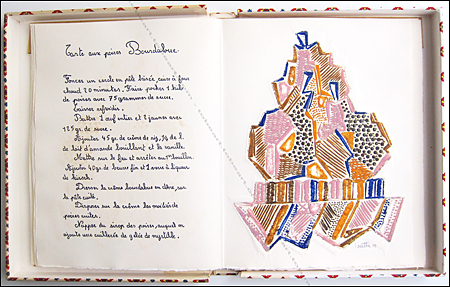 Tarte aux poires Bourdaloue.
Foncez un cercle en pâte brisée, cuire à four
chaud 20 minutes. Faire pocher 1 kilo
de poires avec 75 grammes de sucre.
Laisser refroidir.
Battre 1 œuf entier et 2 jaunes avec
125 gr. de sucre.
Ajouter 45 gr. de crème de riz, 3/4 de l.
de lait d'amande bouillant et la vanille.
Mettre sur le feu et arrêter au 1er bouillon.
Ajouter 40 gr de beurre fin et 1 verre à liqueur
de kirsch.
Dresser la crème bourdaloue en dôme, sur
la pâte cuite.
Disposer sur la crème les moitiés de
poires cuites.
Napper du sirop des poires, auquel on
ajoute une cuillerée de gelée de myrtille.